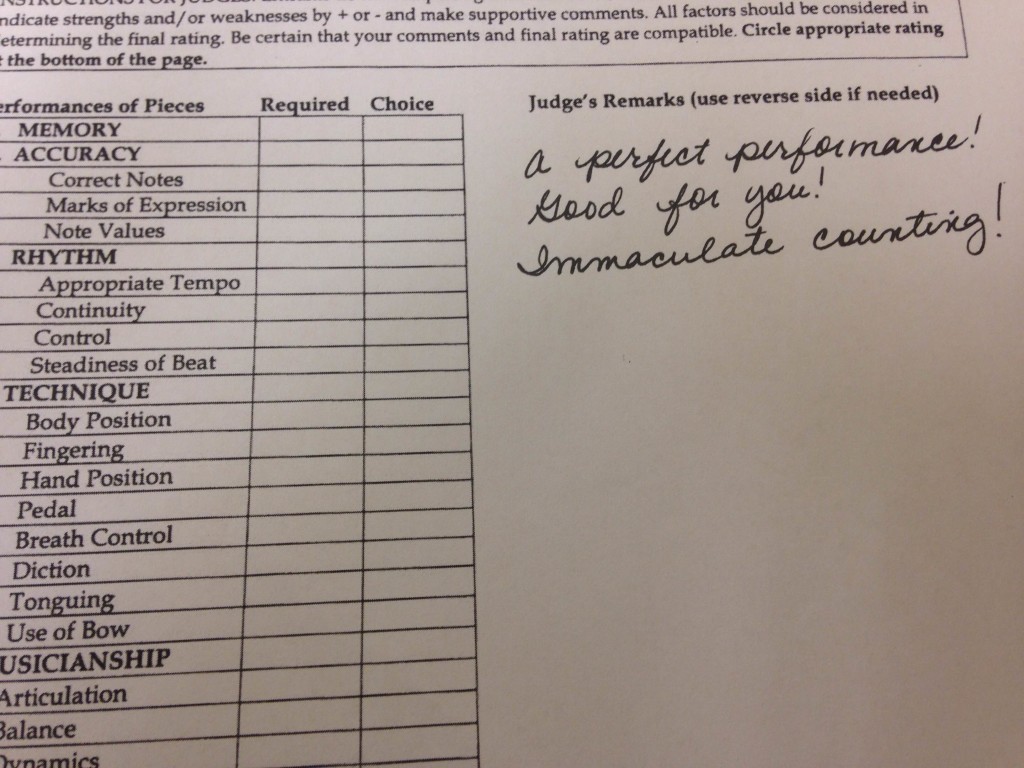 ndicate strengths and/or weaknesses by + or - and make supportive comments. All factors should be considered in
etermining the final rating. Be certain that your comments and final rating are compatible. Circle appropriate rating
the bottom of the page.
erformances of Pieces Required Choice
MEMORY
ACCURACY
Correct Notes
Marks of Expression
Note Values
RHYTHM
Appropriate Tempo
Continuity
Control
Steadiness of Beat
TECHNIQUE
Body Position
Fingering
Hand Position
Pedal
Breath Control
Diction
Tonguing
Use of Bow
USICIANSHIP
Articulation
Balance
Dynamics
Judge's Remarks (use reverse side if needed)
A perfect performance!
Good for you!
Immaculate counting!